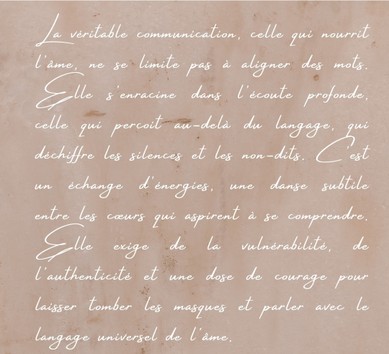 La véritable communication, celle qui nourrit
l'âme, ne se limite pas à aligner des mots.
Elle s'enracine dans l'écoute profonde,
celle qui perçoit au-delà du langage, qui
déchiffre les silences et les non-dits. C'est
un échange d'énergies, une danse subtile
entre les cœurs qui aspirent à se comprendre.
Elle exige de la vulnérabilité, de
l'authenticité et une dose de courage pour
laisser tomber les masques et parler avec le
langage universel de l'âme.